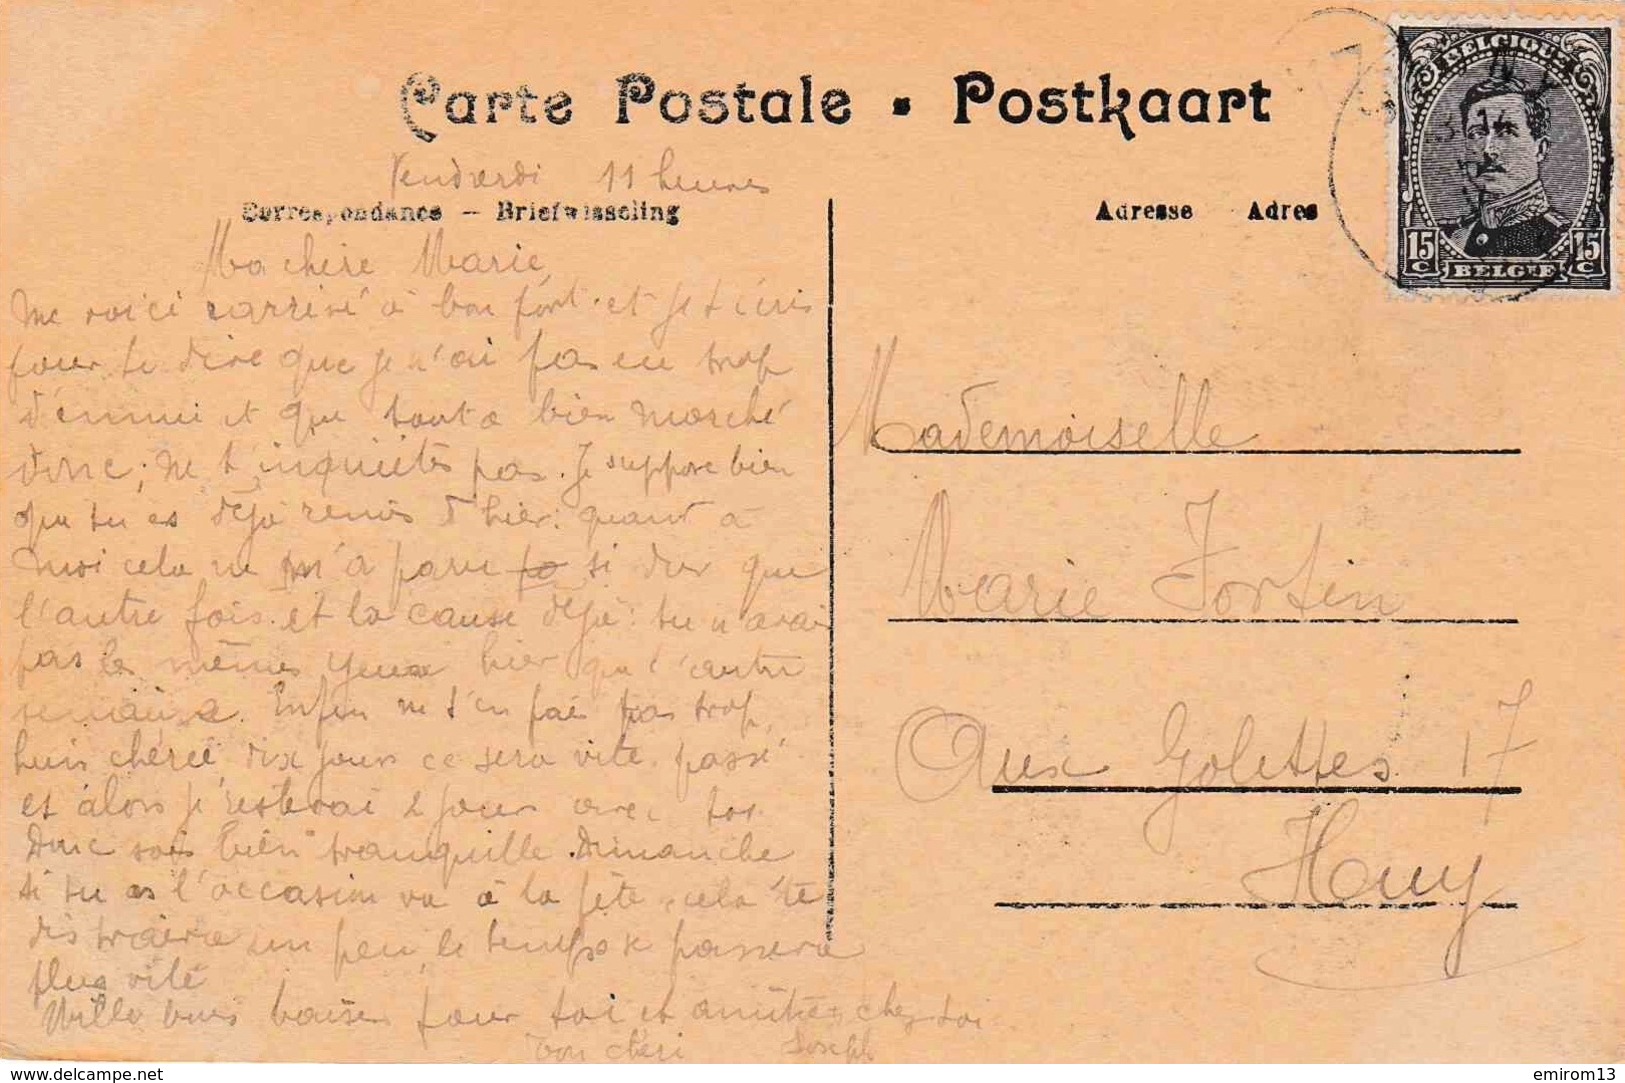 Carte Postale - Postkaart
Vendredi 11 heures
Correspondance - Briefwisseling
Ma chère Marie,
me voici arrivé à bon port et je t'écris
pour te dire que je n'ai pas eu trop
d'ennui et que tout a bien marché
donc, ne t'inquiètes pas. Je suppose bien
que tu es déjà remis d'hier: quant à
moi cela ne m'a paru si dur que
l'autre fois et la cause déjà: tu n'avais
pas les mêmes yeux hier que l'autre
semaine. Enfin ne t'en fais pas trop,
chérie, dix jours ce sera vite passé
et alors je resterai 2 jours avec toi.
Donc sois bien tranquille. Dimanche
si tu as l'occasion va à la fête, cela te
distraira un peu, le temps passera
plus vite
Mille baisers pour toi et amitiés chez toi
Ton chéri Joseph
Adresse Adres
BELGIQUE
15 C 15 C
BELGIE
Mademoiselle
Marie Fortin
Aux Golettes 17
Huy
www.delcampe.net
emirom13